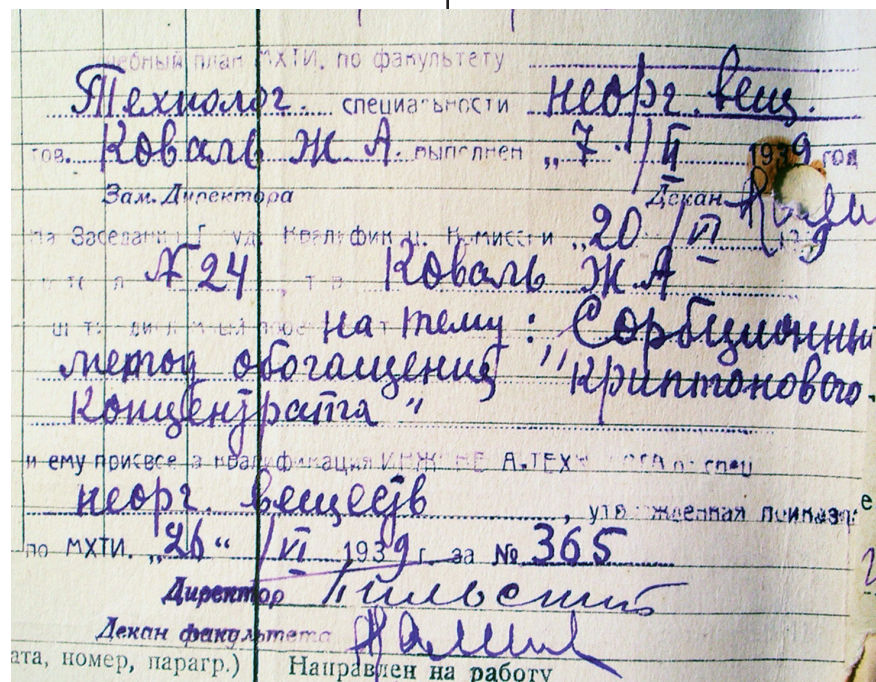 учебный план МХТИ, по факультету
Технолог. специальности неорг. вещ.
тов. Коваль Ж. А. выполнен „7"/II 1939 год
Зам. Директора Декан
на Заседании уд. Квалифик ц. Комиссии „20/VI 9
№24, Коваль Ж. А
на тему: Сорбционный
метод обогащения "криптонового
Концентрата"
и ему присвоена квалификация ИНЖЕНЕРА-ТЕХНОЛОГА по спец
неорг. веществ, утвержденная приказом
по МХТИ. „26“/VI 1939 г. за № 365
Директор
Декан факультета
ата, номер, парагр.) Направлен на работу